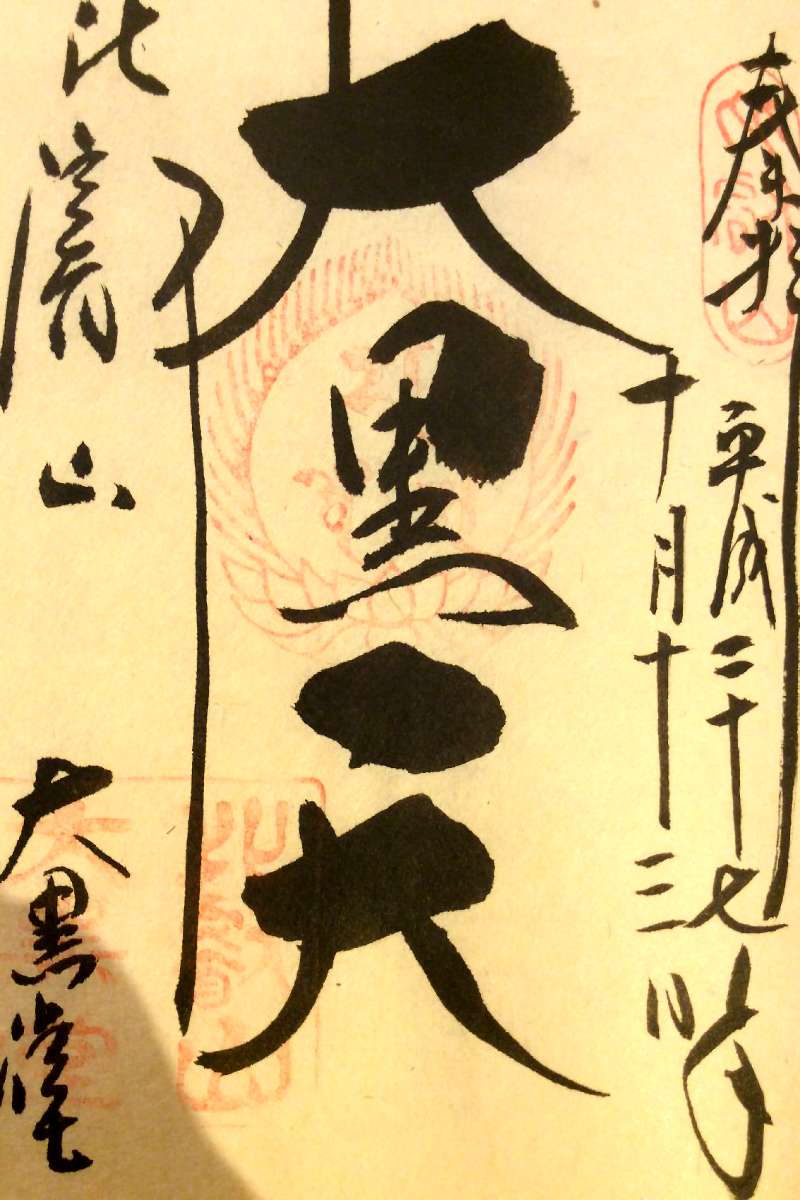 奉拝
平成二十七年
十月十三日
大黒天
比叡山
大黒堂